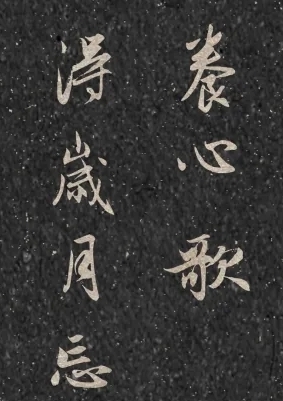 養心歌
得歲月忘